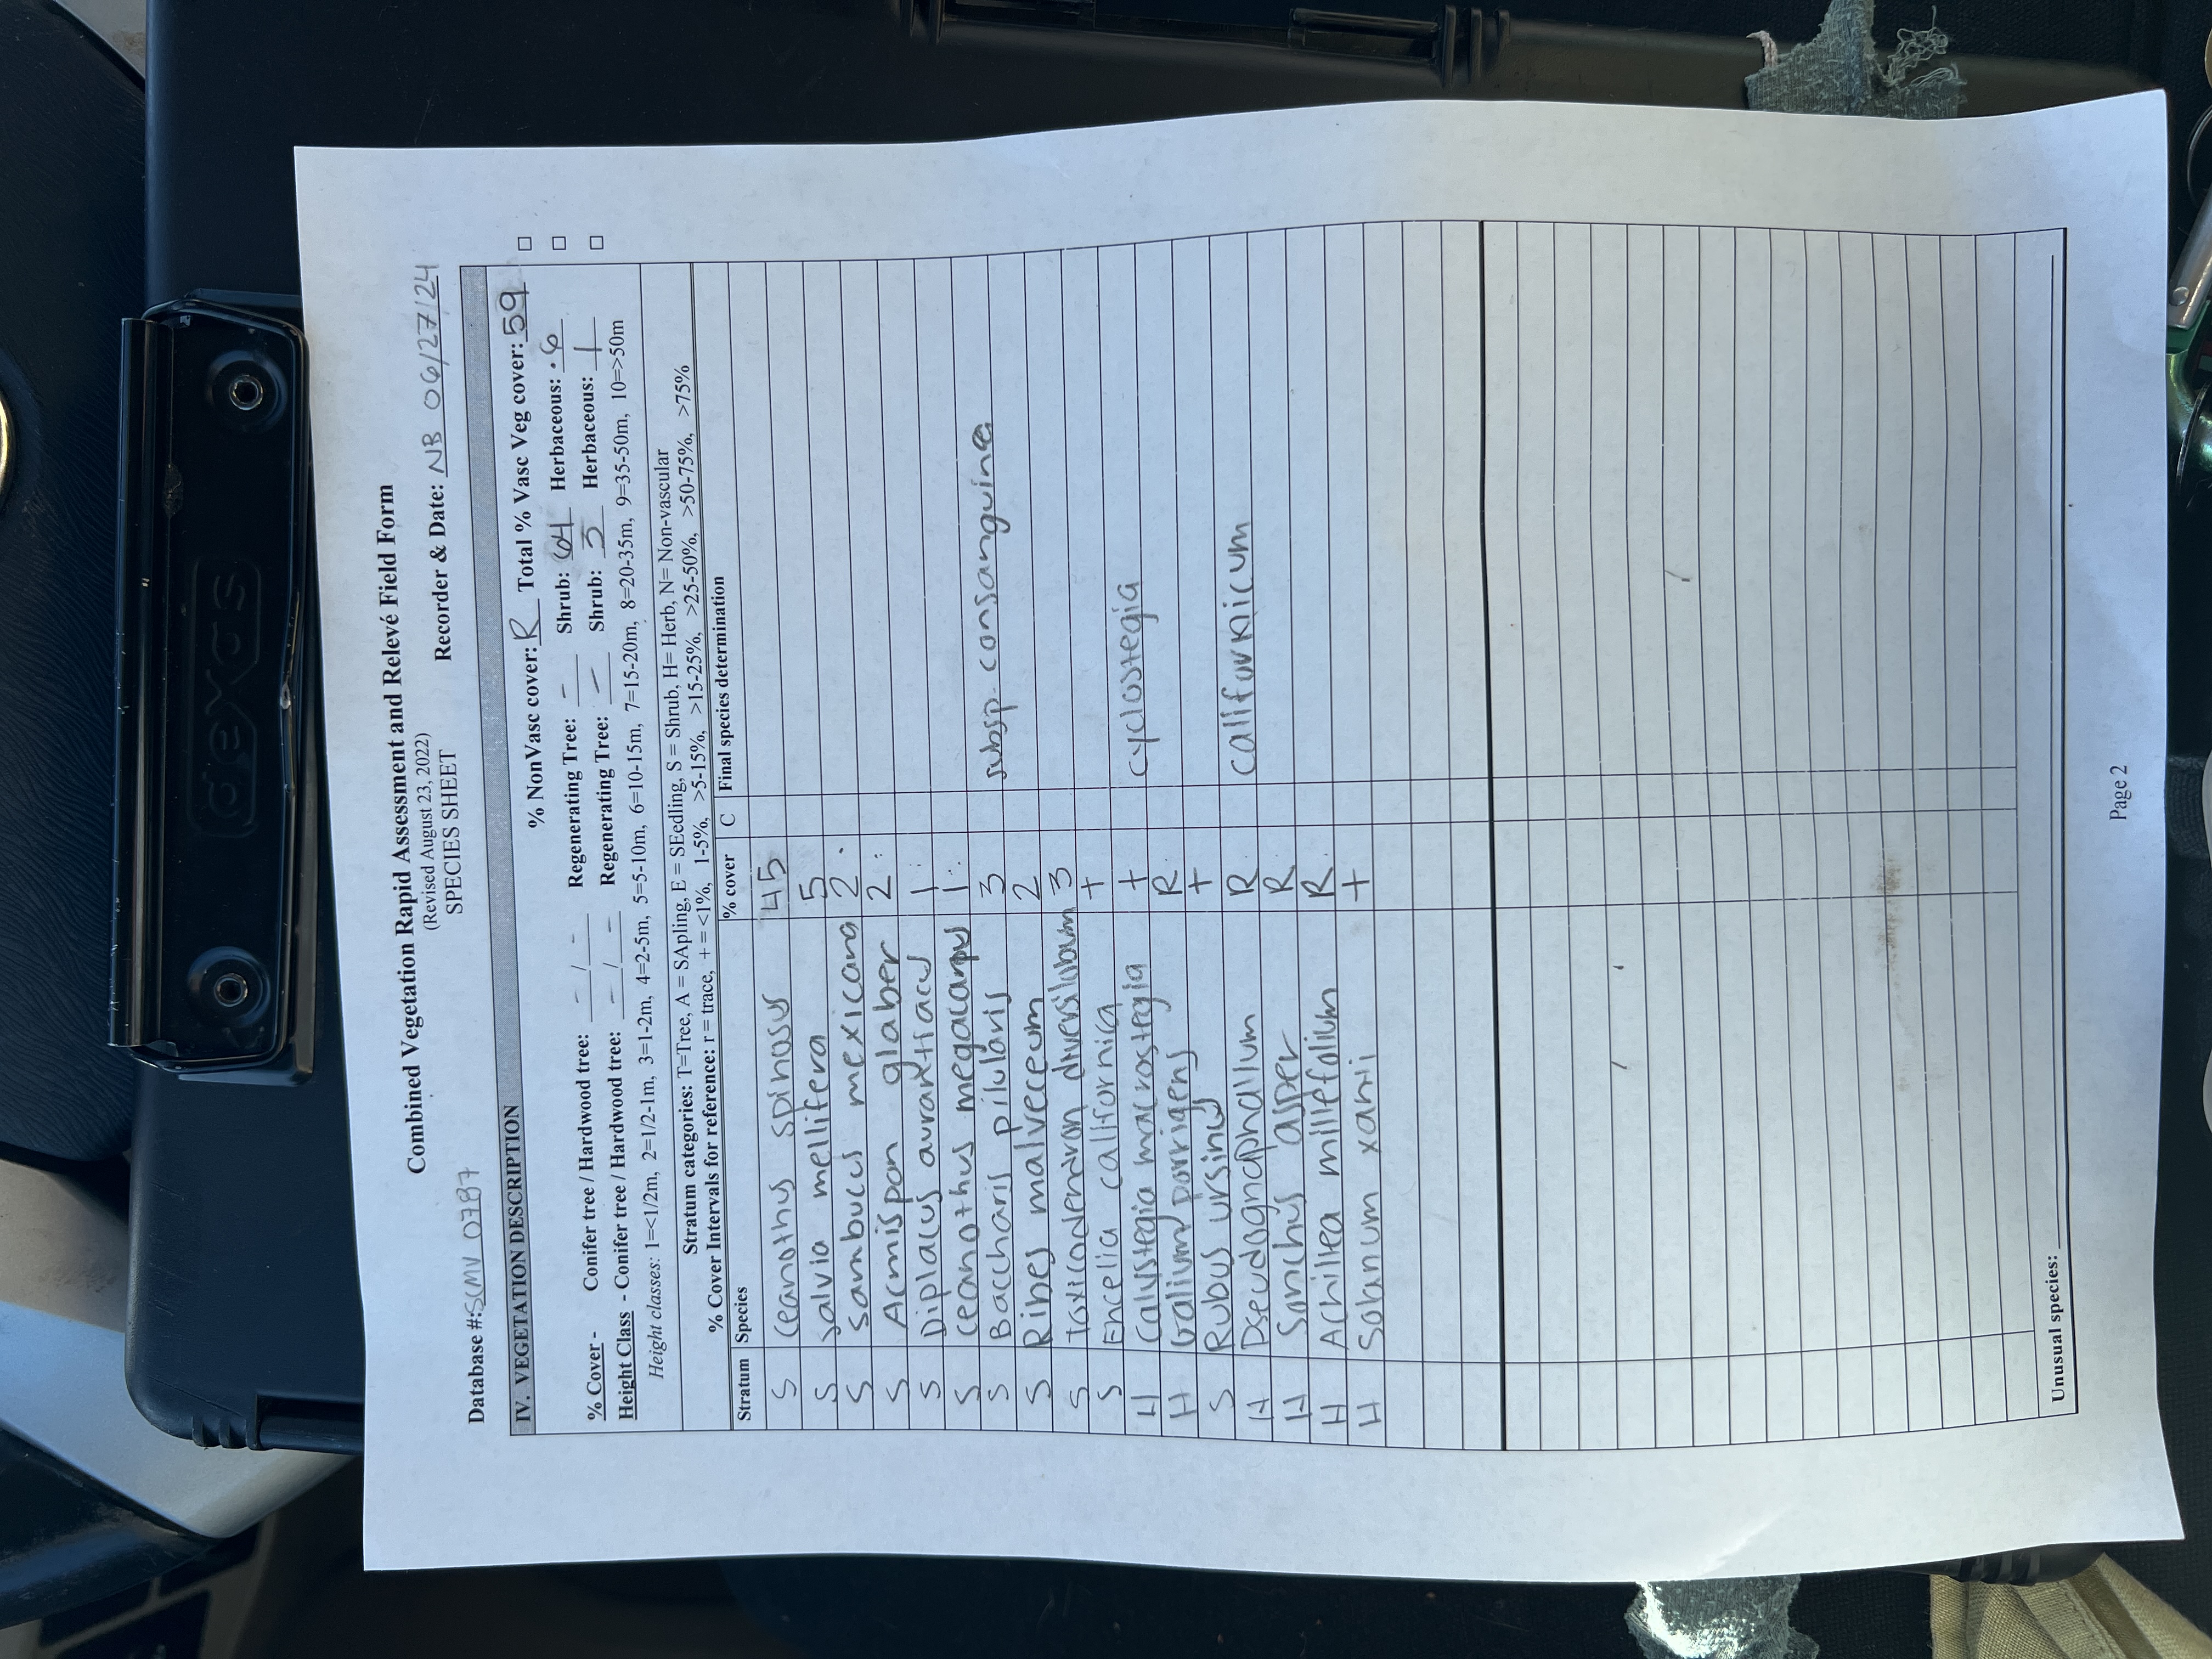 dexas
Combined Vegetation Rapid Assessment and Relevé Field Form
(Revised August 23, 2022)
SPECIES SHEET
Database #: SCMV 0787 Recorder & Date: NB 06/27/24
IV. VEGETATION DESCRIPTION
% NonVasc cover: R Total % Vasc Veg cover: 59 □
% Cover - Conifer tree / Hardwood tree: - / - Regenerating Tree: - Shrub: 64 Herbaceous: .6 □
Height Class - Conifer tree / Hardwood tree: - / - Regenerating Tree: - Shrub: 3 Herbaceous: 1 □
Height classes: 1=<1/2m, 2=1/2-1m, 3=1-2m, 4=2-5m, 5=5-10m, 6=10-15m, 7=15-20m, 8=20-35m, 9=35-50m, 10=>50m
Stratum categories: T=Tree, A = SApling, E = SEedling, S = Shrub, H= Herb, N= Non-vascular
% Cover Intervals for reference: r = trace, + = <1%, 1-5%, >5-15%, >15-25%, >25-50%, >50-75%, >75%
Stratum Species % cover C Final species determination
S Ceanothus spinosus 45
S Salvia mellifera 5
S Sambucus mexicana 2
S Acmispon glaber 2
S Diplacus aurantiacus 1
S Ceanothus megacarpus 1
S Baccharis pilularis 3 subsp. consanguinea
S Ribes malvaceum 2
S Toxicodendron diversilobum 3
S Encelia californica +
H Calystegia macrostegia + cyclostegia
H Galium porrigens R
S Rubus ursinus +
H Pseudognaphalium R californicum
H Sonchus asper R
H Achillea millefolium R
H Solanum xanti +
Unusual species:
Page 2